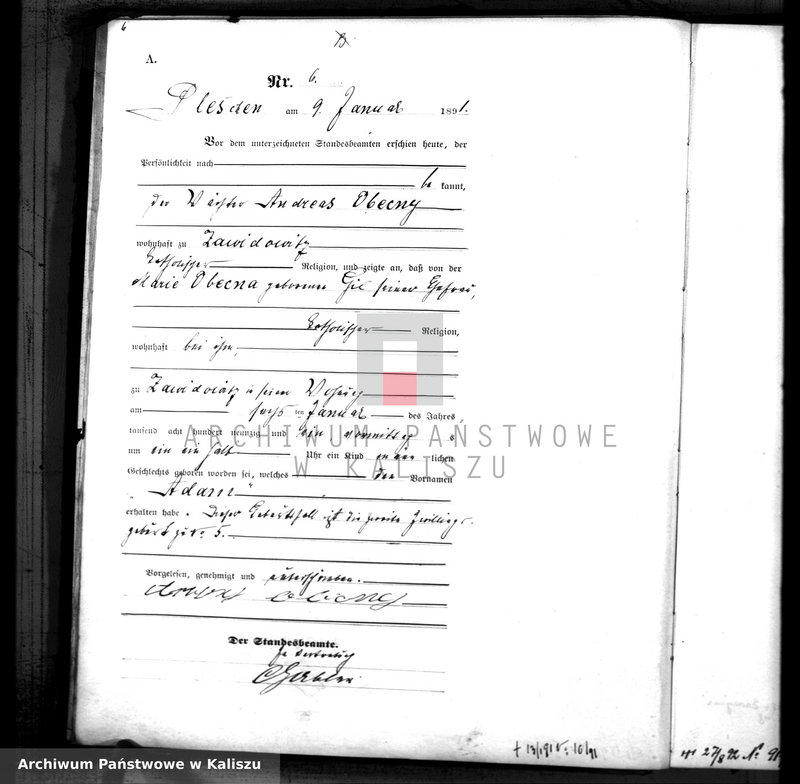 6
B
A.
Nr. 6.
Pleschen am 9. Januar 1891.
Vor dem unterzeichneten Standesbeamten erschien heute, der
Persönlichkeit nach
be kannt,
der Wächter Andreas Obecny
wohnhaft zu Zawidowitz
katholischer Religion, und zeigte an, daß von der
Marie Obecna geborenen seiner Ehefrau,
katholischer Religion,
wohnhaft bei ihm,
zu Zawidowitz in seiner Wohnung
am sechs ten Januar des Jahres
tausend acht hundert neunzig und ein vormittag s
um ein ein halb Uhr ein Kind männ lichen
Geschlechts geboren worden sei, welches den Vornamen
"Adam"
erhalten habe. Dieser Geburtsfall ist die zweite Zwillings-
geburt zu No 5.
Vorgelesen, genehmigt und unterschrieben.
Der Standesbeamte.
In Vertretung
ARCHIWUM PAŃSTWOWE
W KALISZU
† 13/1 91 No 10/91
27/8 92 No 91
Archiwum Państwowe w Kaliszu